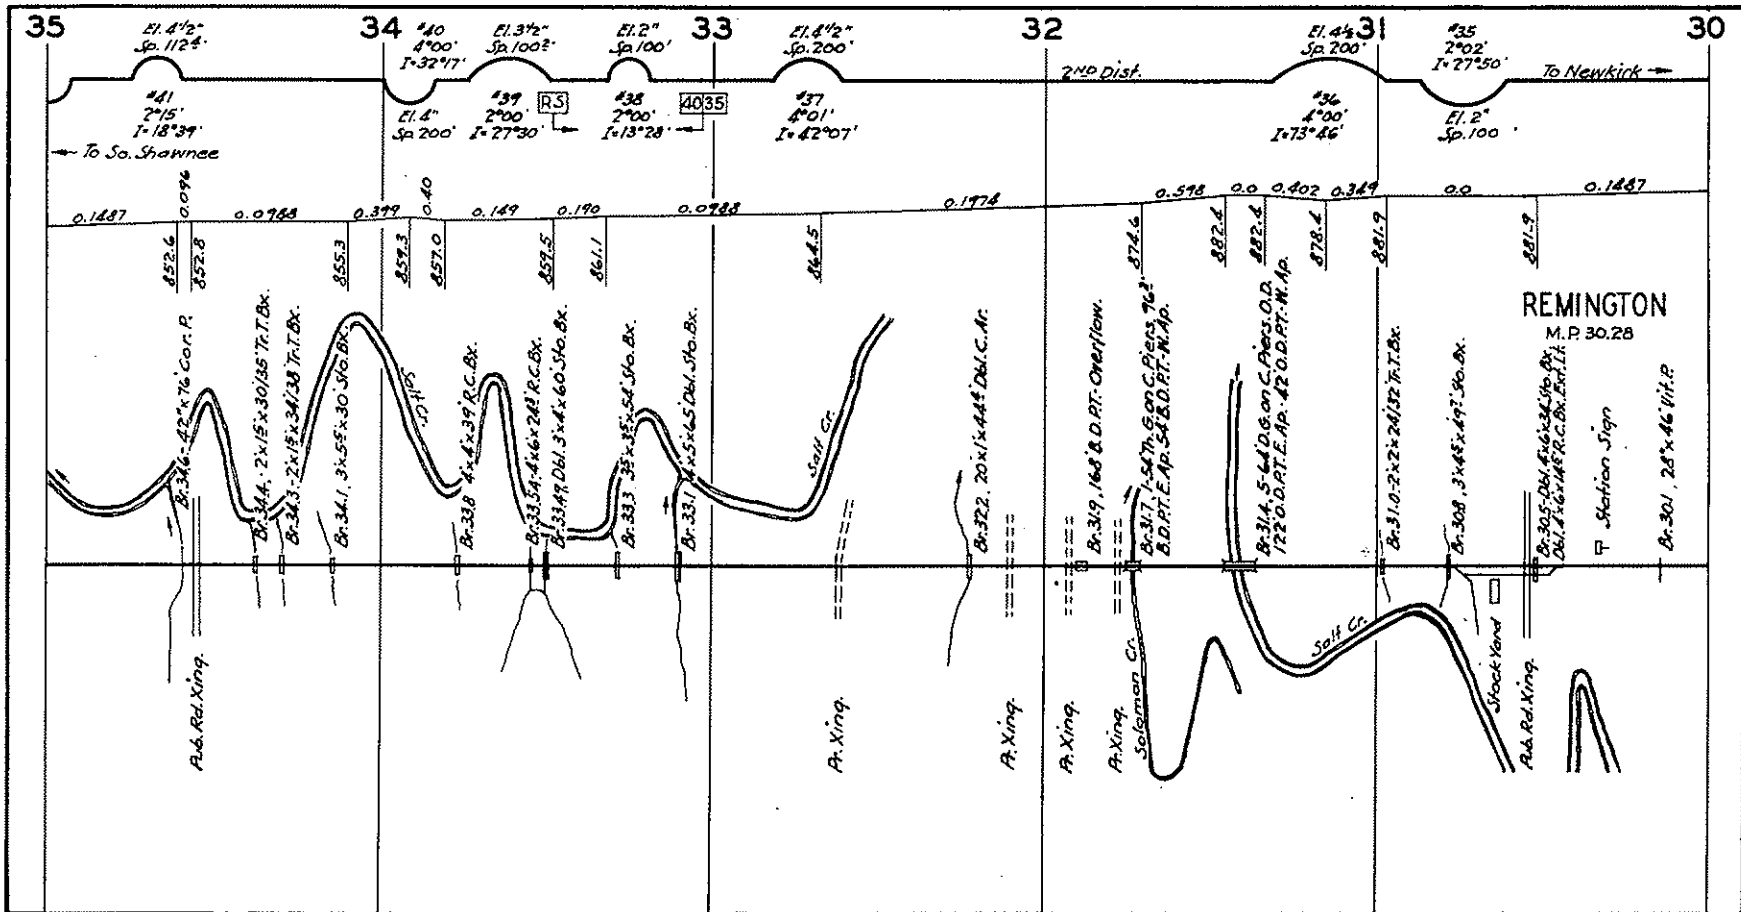 35
34
33
32
31
30
El. 4½"
Sp. 112⁴'
#40
4°00'
I=32°17'
El. 3½"
Sp. 100²'
El. 2"
Sp. 100'
El. 4½"
Sp. 200'
El. 4½
Sp. 200'
#35
2°02'
I=27°50'
2ND Dist.
To Newkirk
#41
2°15'
I=18°39'
El. 4"
Sp. 200'
#39
2°00'
I=27°30'
RS
#38
2°00'
I=13°28'
40 35
#37
4°01'
I=42°07'
#36
4°00'
I=73°46'
El. 2"
Sp. 100'
To So. Shawnee
0.1487
0.096
0.0988
0.399
0.40
0.149
0.190
0.0988
0.1974
0.598
0.0
0.402
0.349
0.0
0.1487
852.6
852.8
855.3
859.3
857.0
859.5
861.1
864.5
874.6
882.4
882.4
878.4
881.9
881.9
REMINGTON
M.P. 30.28
Br. 34.6 - 42" x 76' Cor. P.
Br. 34.4, - 2' x 1⁵' x 30/35' Tr. T. Bx.
Br. 34.3 - 2' x 1⁵' x 34/38' Tr. T. Bx.
Br. 34.1, 3' x 5⁵' x 30' Sto. Bx.
Salt Cr.
Br. 33.8 4' x 4' x 39' R.C. Bx.
Br. 33.54 - 4' x 6' x 24⁸' R.C. Bx.
Br. 33.49, Dbl. 3' x 4' x 60' Sto. Bx.
Br. 33.3 3⁵' x 3⁵' x 54' Sto. Bx.
Br. 33.1 4' x 5' x 65' Dbl. Sto. Bx.
Salt Cr.
Br. 32.2, 20' x 1' x 44⁴' Dbl. C. Ar.
Br. 31.9, 16-8' B.D.P.T.- Overflow.
Br. 31.7, 1-54' Th. G. on C. Piers, 96²'
B.D.P.T.; E. Ap. 54' B.D.P.T.- W. Ap.
Br. 31.4, 5-64' D.G. on C. Piers. O.D.
122' O.D.P.T. E. Ap.- 42' O.D.P.T.- W. Ap.
Br. 31.0 - 2' x 2' x 28/32' Tr. T. Bx.
Br. 30.8, 3' x 4⁵' x 49²' Sto. Bx.
Br. 30.5 - Dbl. 4' x 6' x 34' Sto. Bx.
Dbl. 4' x 6' x 14⁵' R.C. Bx. Ext. Lt.
Station Sign
Br. 30.1, 28" x 46' Vit. P.
Pub. Rd. Xing.
Pr. Xing.
Pr. Xing.
Pr. Xing.
Pr. Xing.
Solomon Cr.
Salt Cr.
Stock Yard
Pub. Rd. Xing.